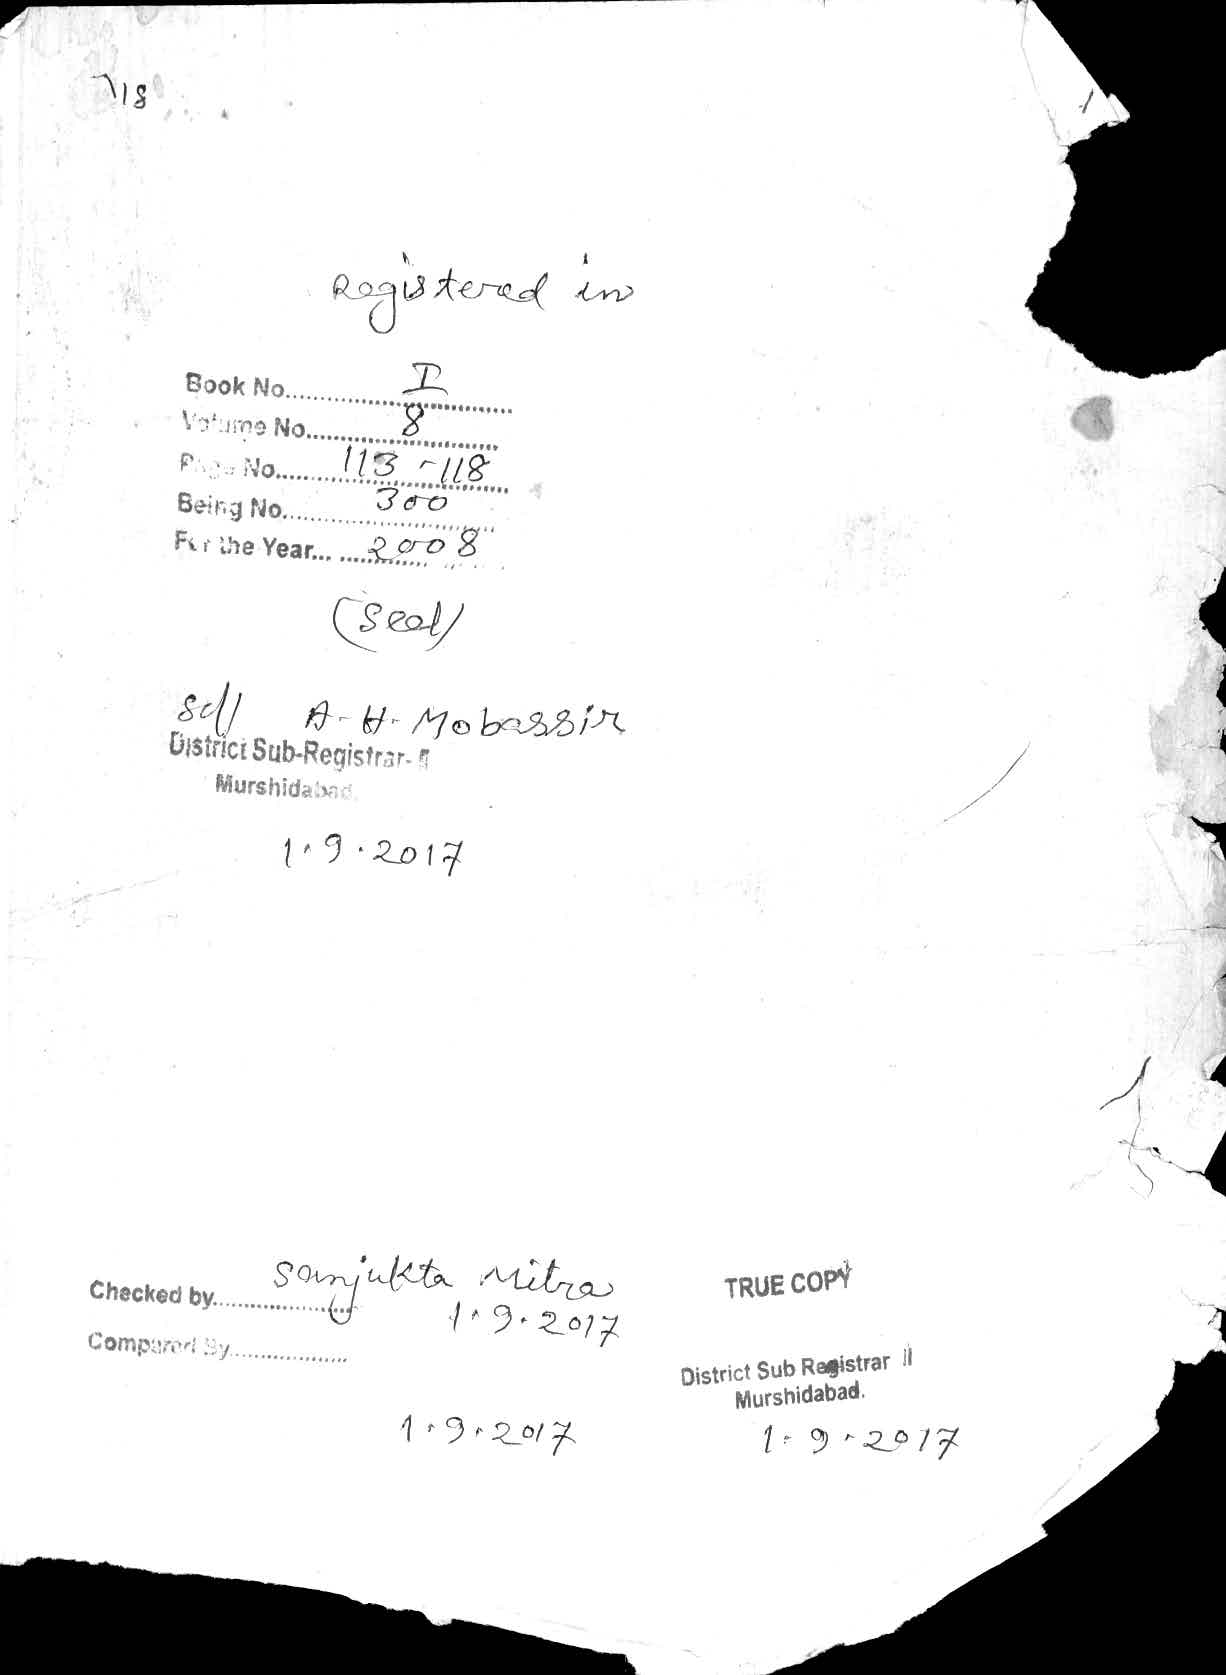 118
Registered in
Book No.............I
Volume No............8
Page No............113-118
Being No............300
For the Year... ............2008
(Seal)
Sd/ A-H-Mobassir
District Sub-Registrar-II
Murshidabad.
1.9.2017
Sanjukta Mitra
Checked by....................
1.9.2017
TRUE COPY
Compared By...................
District Sub Registrar II
Murshidabad.
1.9.2017
1.9.2017